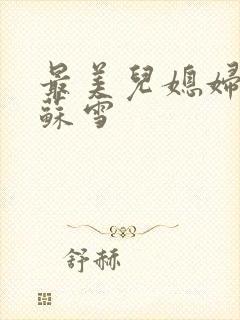 最美兒媳婦
蘇雪
舒赫